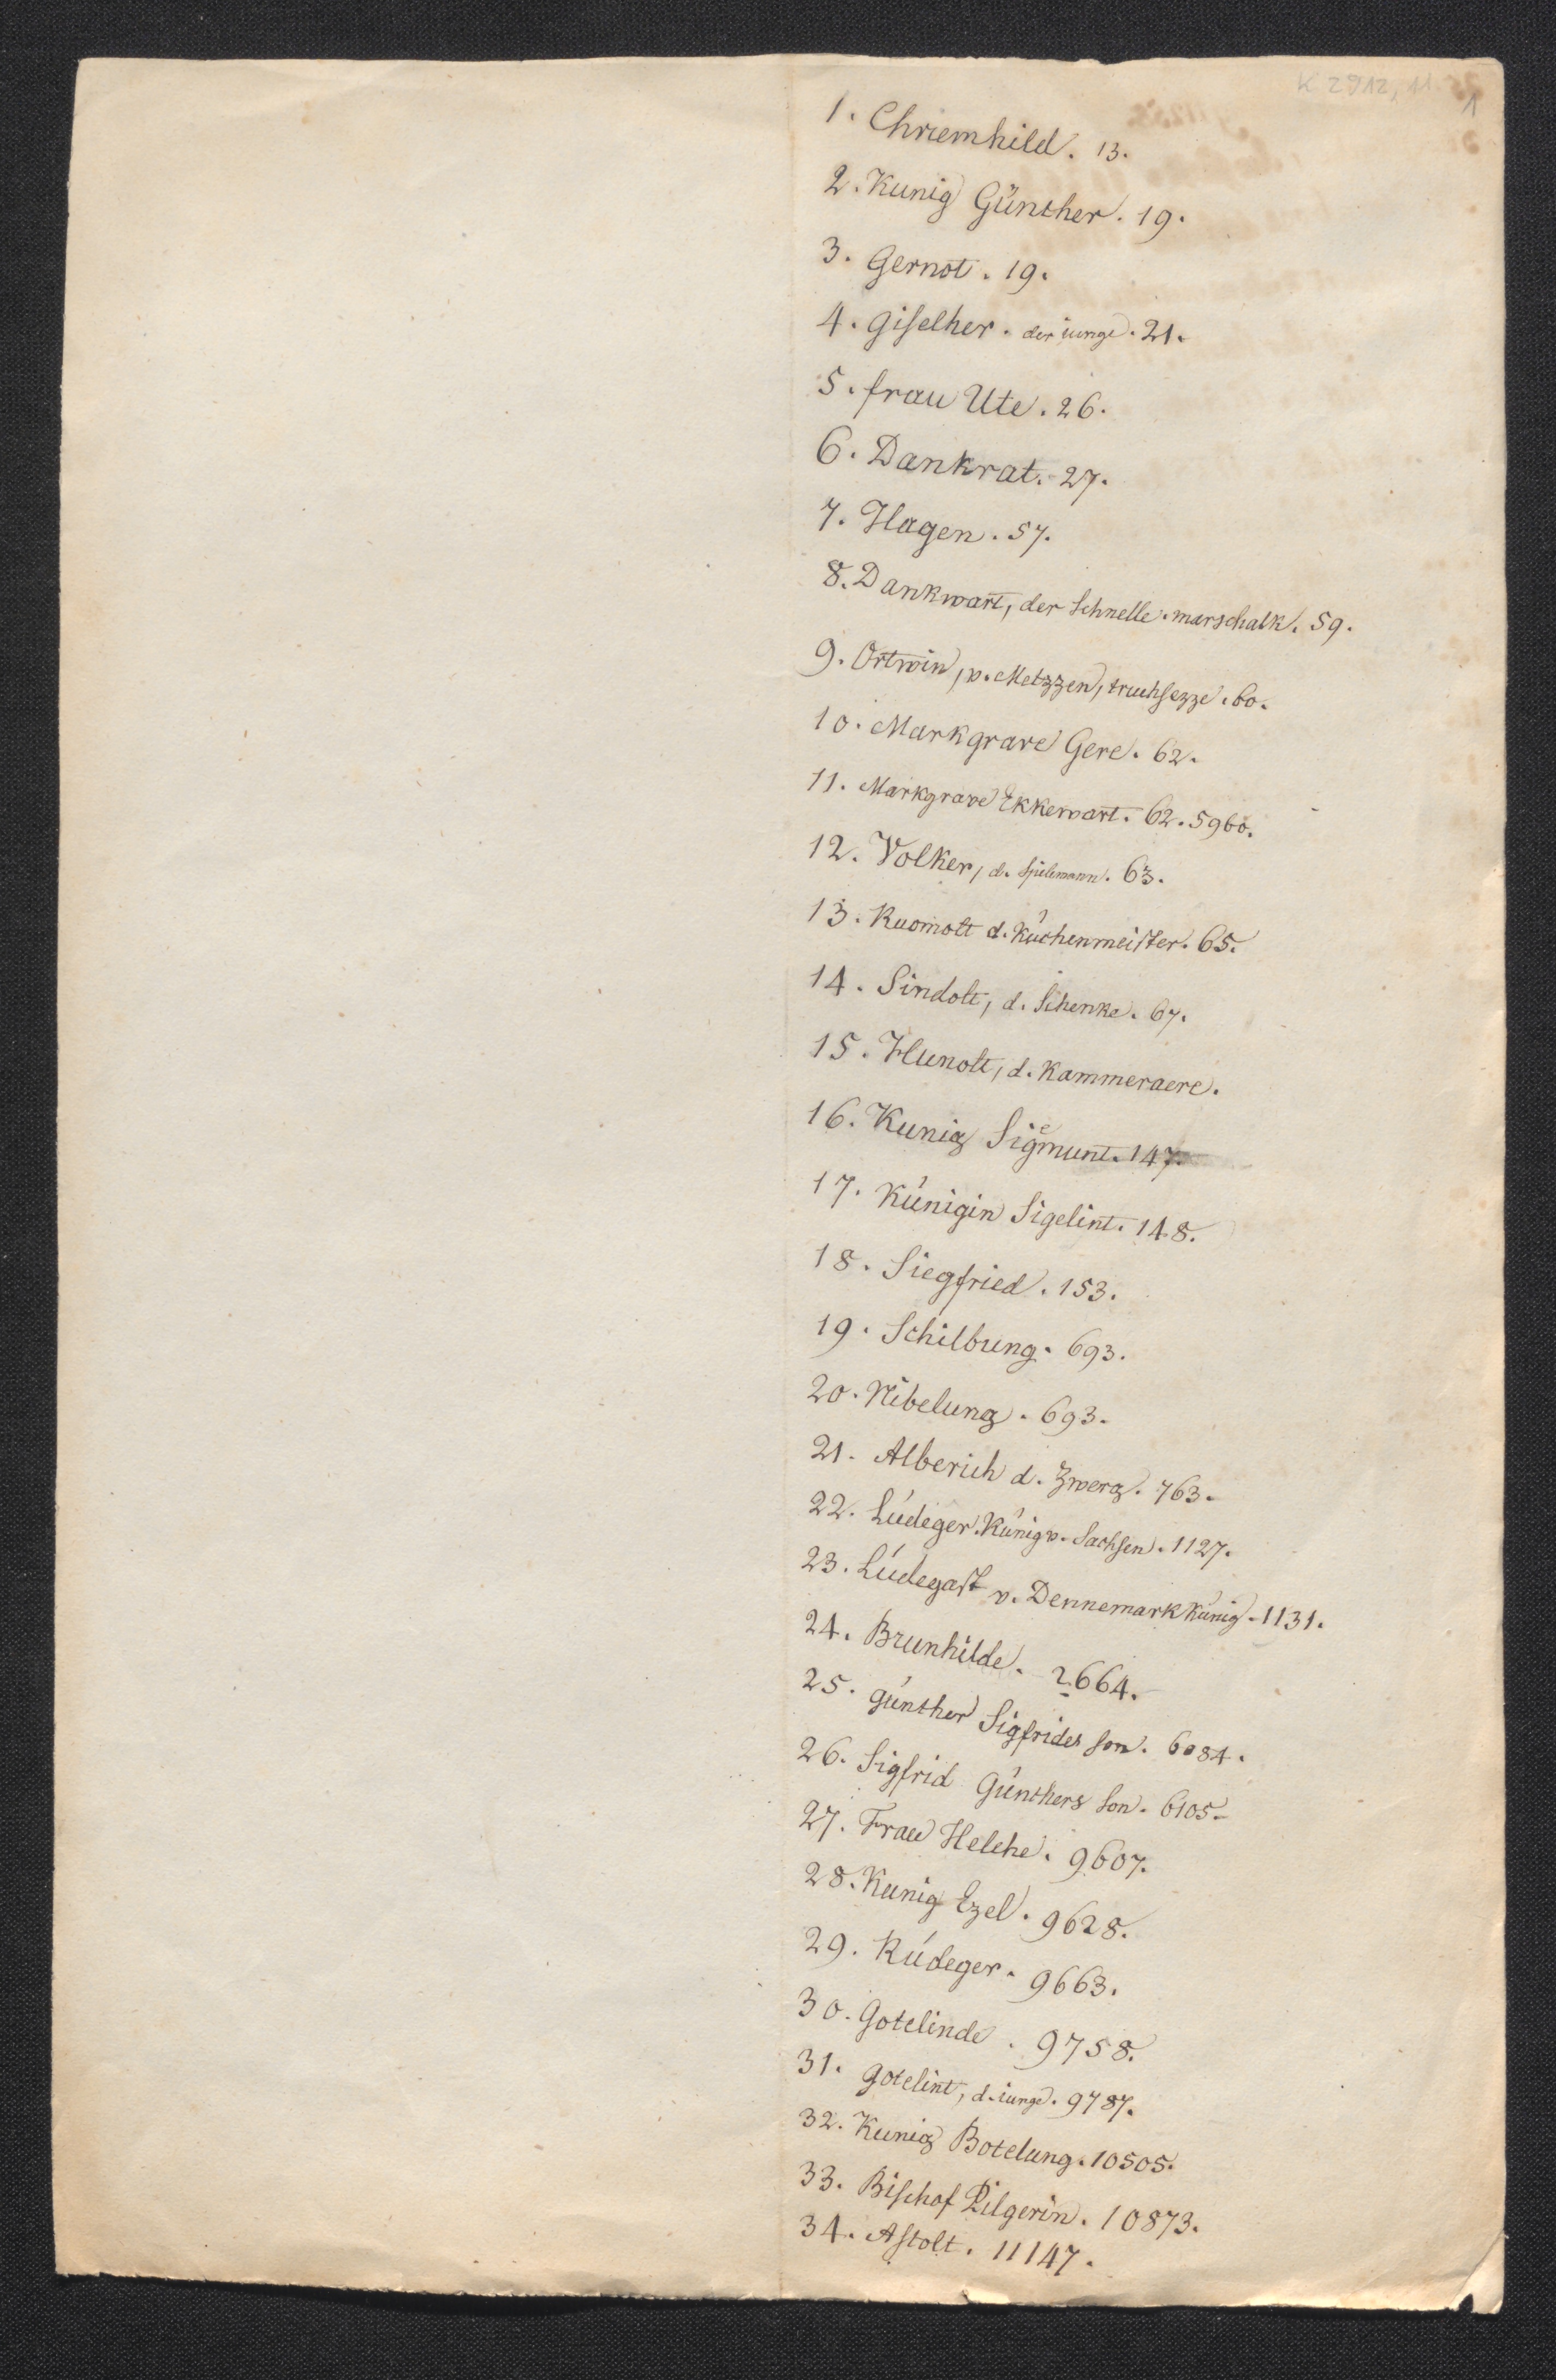 K 2912, 11
1
1. Chriemhild. 13.
2. Kunig Günther. 19.
3. Gernot. 19.
4. Giselher. der iunge. 21.
5. frau Ute. 26.
6. Dankrat. 27.
7. Hagen. 57.
8. Dankwart, der Schnelle. marschalk. 59.
9. Ortwin, v. Metzzen, truchsezze. 60.
10. Markgrave Gere. 62.
11. Markgrave Ekkewart. 62. 5960.
12. Volker, d. Spielemann. 63.
13. Ruomolt d. Kúchenmeister. 65.
14. Sindolt, d. Schenke. 67.
15. Hunolt, d. Kammeraere.
16. Kunig Sigemunt. 147.
17. Kúnigin Sigelint. 148.
18. Siegfried. 153.
19. Schilbung. 693.
20. Nibelung. 693.
21. Alberich d. Zwerg. 763.
22. Lúdeger. Kúnig v. Sachsen. 1127.
23. Lúdegast v. Dennemark Kúnig. 1131.
24. Brunhilde. 2664.
25. Gúnther Sigfrides son. 6084.
26. Sigfrid Gúnthers son. 6105.
27. Frau Helche. 9607.
28. Kunig Ezel. 9628.
29. Rúdeger. 9663.
30. Gotelinde. 9758.
31. Gotelint, d. iunge. 9787.
32. Kunig Botelung. 10505.
33. Bischof Pilgerin. 10873.
34. Astolt. 11147.